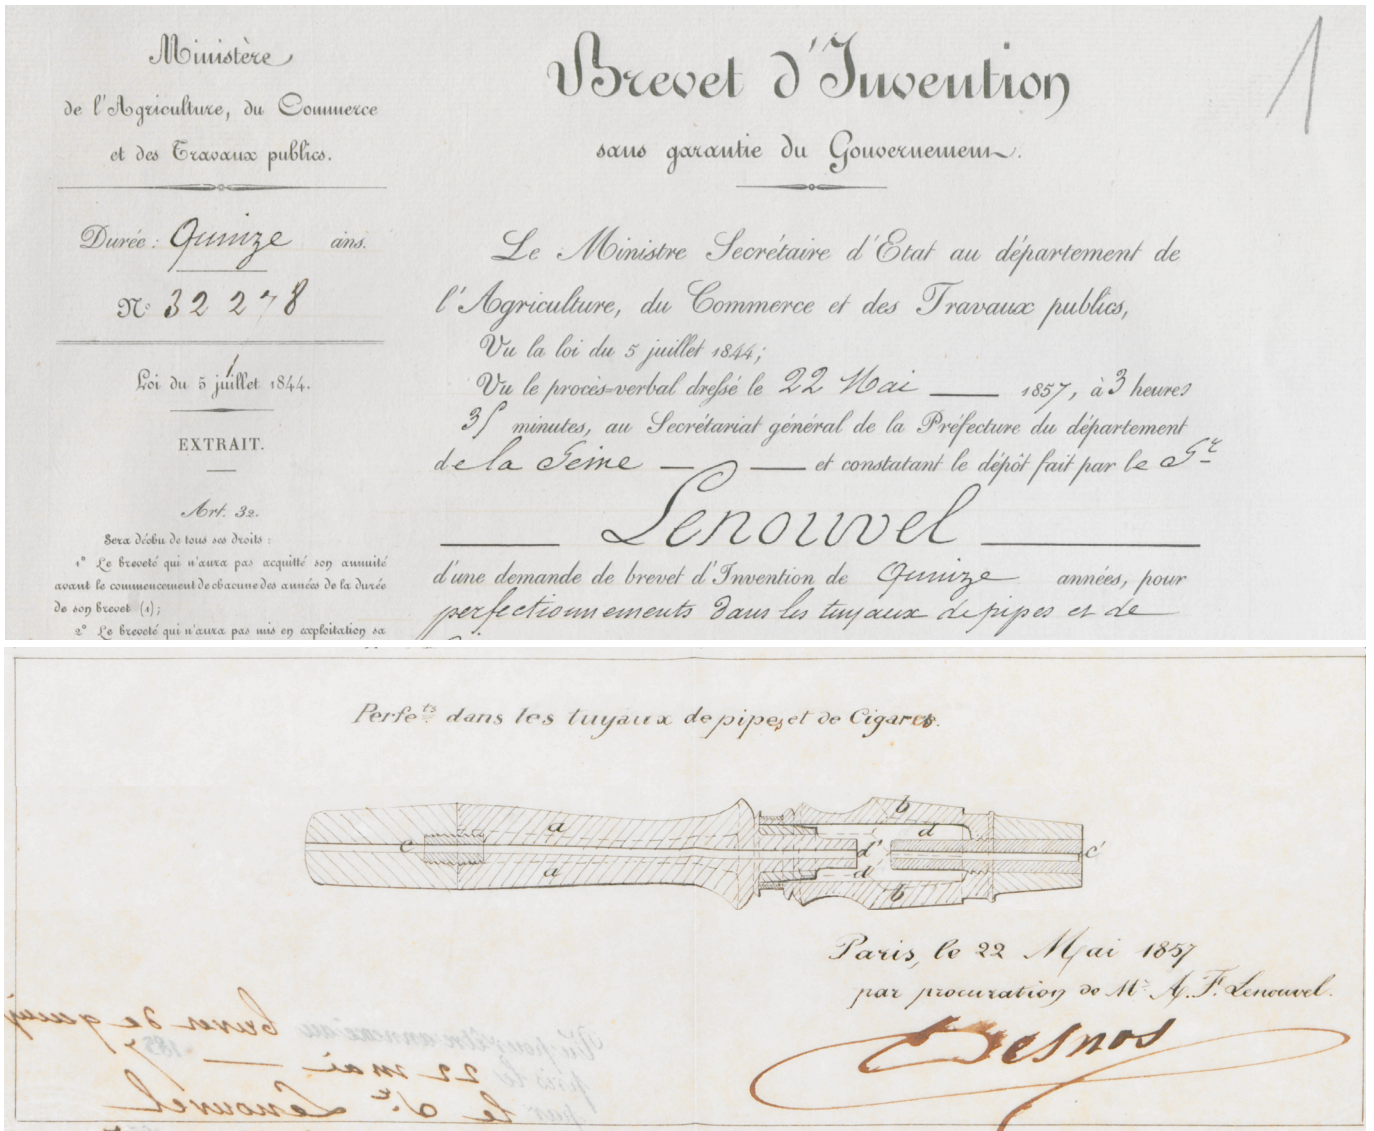 Ministère
de l'Agriculture, du Commerce
et des Travaux publics.
Durée : Quinze ans.
N° 32278
Loi du 5 juillet 1844.
EXTRAIT.
Art. 32.
Sera déchu de tous ses droits :
1° Le breveté qui n'aura pas acquitté son annuité
avant le commencement de chacune des années de la durée
de son brevet (1) ;
2° Le breveté qui n'aura pas mis en exploitation sa
Brevet d'Invention
sans garantie du Gouvernement.
1
Le Ministre Secrétaire d'Etat au département de
l'Agriculture, du Commerce et des Travaux publics,
Vu la loi du 5 juillet 1844 ;
Vu le procès-verbal dressé le 22 Mai 1857, à 3 heures
35 minutes, au Secrétariat général de la Préfecture du département
de la Seine et constatant le dépôt fait par le Sr
Lenouvel
d'une demande de brevet d'Invention de Quinze années, pour
perfectionnements dans les tuyaux de pipes et de
Perfets dans les tuyaux de pipes et de Cigares.
a
a
b
b
c
c'
d
d'
d
Paris, le 22 Mai 1857
par procuration de Mr A. F. Lenouvel.
Desnos
Vu pour être annexé au
brevet de quinze
pris le 22 mai 1857
par le Sr Lenouvel